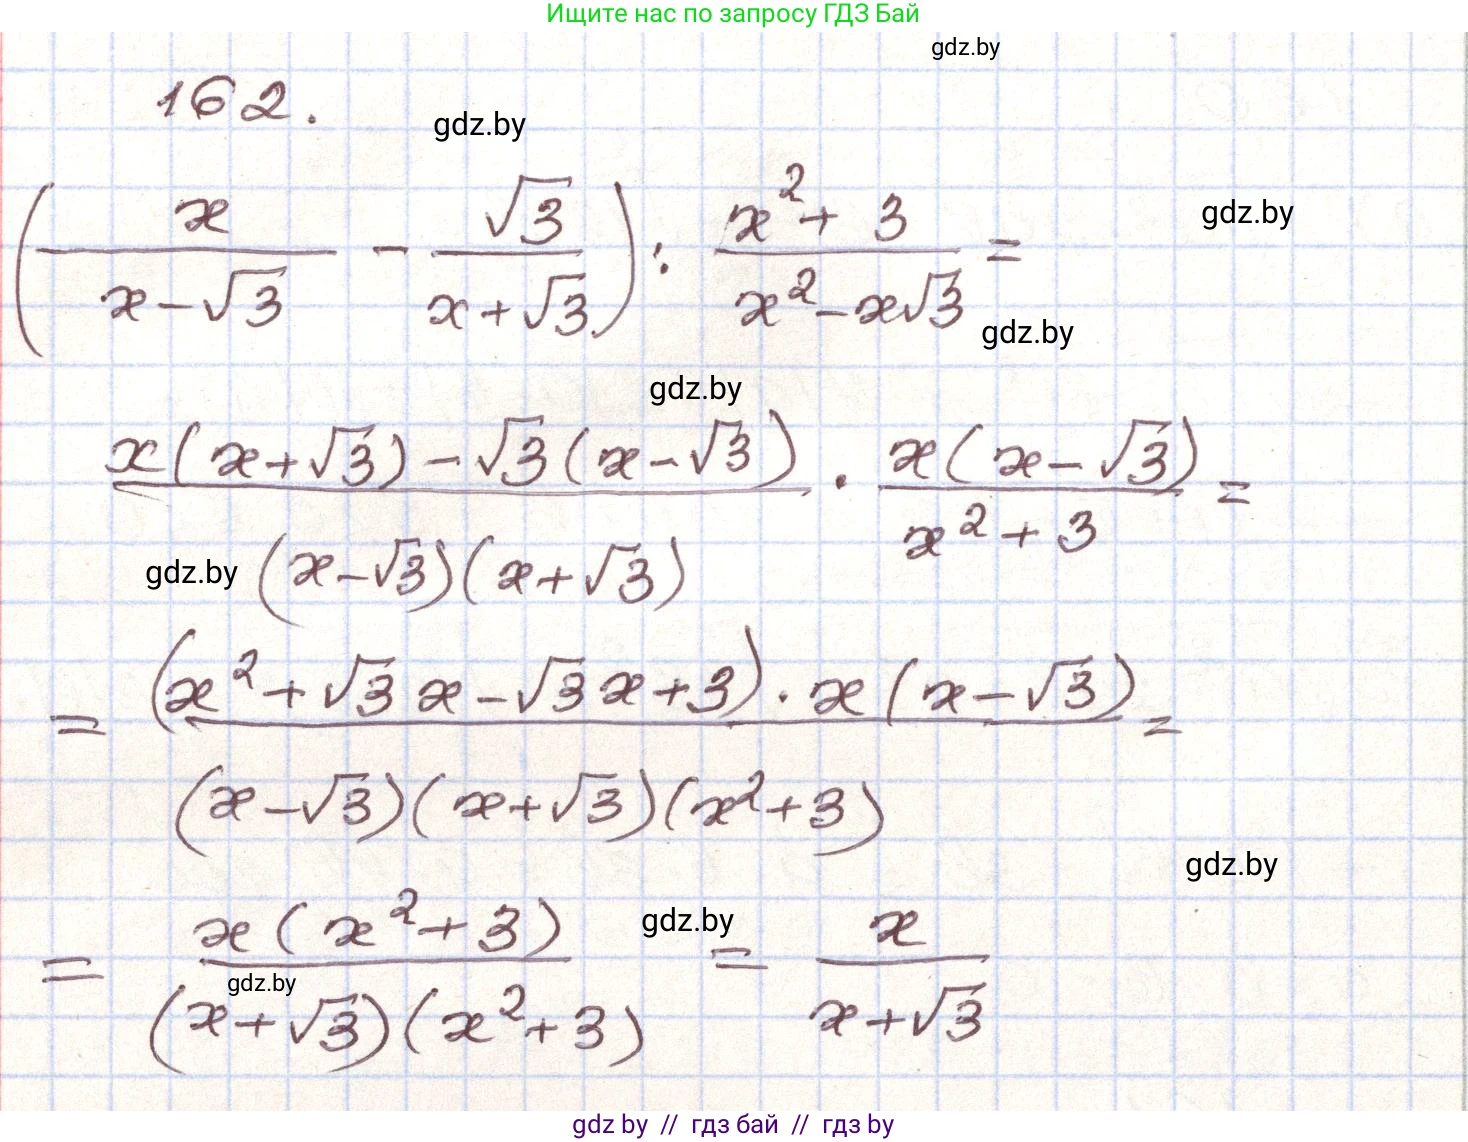 Ищите нас по запросу ГДЗ Бай
gdz.by
162.
gdz.by
(x/(x-√3) - √3/(x+√3)) : (x²+3)/(x²-x√3) =
gdz.by
gdz.by
gdz.by
(x(x+√3)-√3(x-√3))/((x-√3)(x+√3)) · (x(x-√3))/(x²+3) =
gdz.by
= ((x²+√3x-√3x+3)·x(x-√3))/((x-√3)(x+√3)(x²+3)) =
gdz.by
gdz.by
= (x(x²+3))/((x+√3)(x²+3)) = x/(x+√3)
gdz.by
gdz by // гдз бай // гдз by